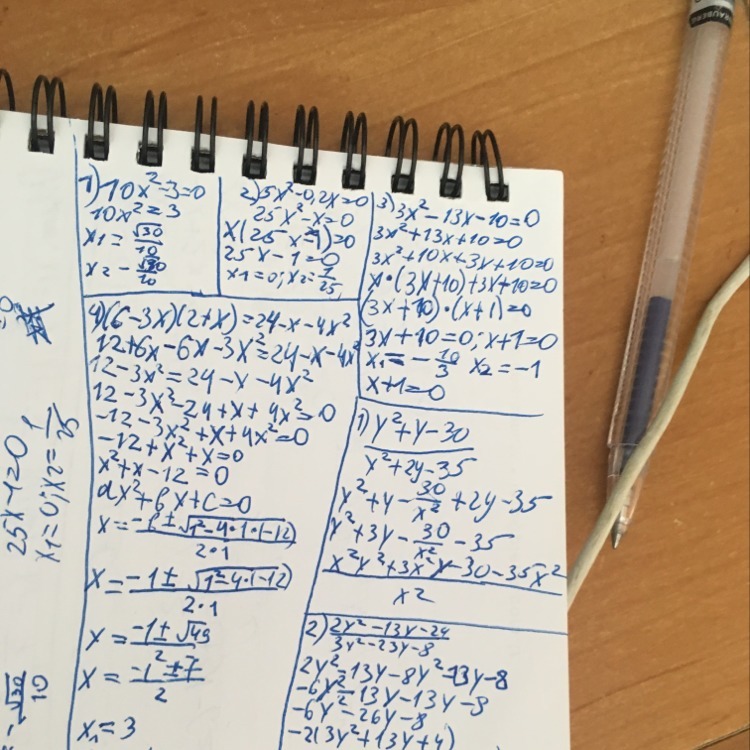 1) 10x²-3=0
10x²=3
x₁=√30/10
x₂-√30/10
2) 5x²-0,2x=0
25x²-x=0
x(25x-1)=0
25x-1=0
x₁=0; x₂=1/25
3) 3x²-13x-10=0
3x²+13x+10=0
3x²+10x+3x+10=0
x·(3x+10)+3x+10=0
(3x+10)·(x+1)=0
3x+10=0; x+1=0
x₁=-10/3 x₂=-1
x+1=0
4) (6-3x)(2+x)=24-x-4x²
12+6x-6x-3x²=24-x-4x²
12-3x²=24-x-4x²
12-3x²-24+x+4x²=0
-12-3x²+x+4x²=0
-12+x²+x=0
x²+x-12=0
ax²+bx+c=0
x=-1±√1²-4·1·(-12)/2·1
x=-1±√1²-4·(-12)/2·1
x=-1±√49/2
x=-1±7/2
x₁=3
1) y²+y-30/y²+2y-35
x²+y-30/x²+2y-35
x²+3y-30/x²-35
x²y²+3x²y-30-35x²
x2
2) 2y²-13y-24/3y²-23y-8
2y²-13y-8y²-13y-8
-6y²-13y-13y-8
-6y²-26y-8
-2(3y²+13y+4)
25x-1=0
x₁=0; x₂=1/25
√30/10